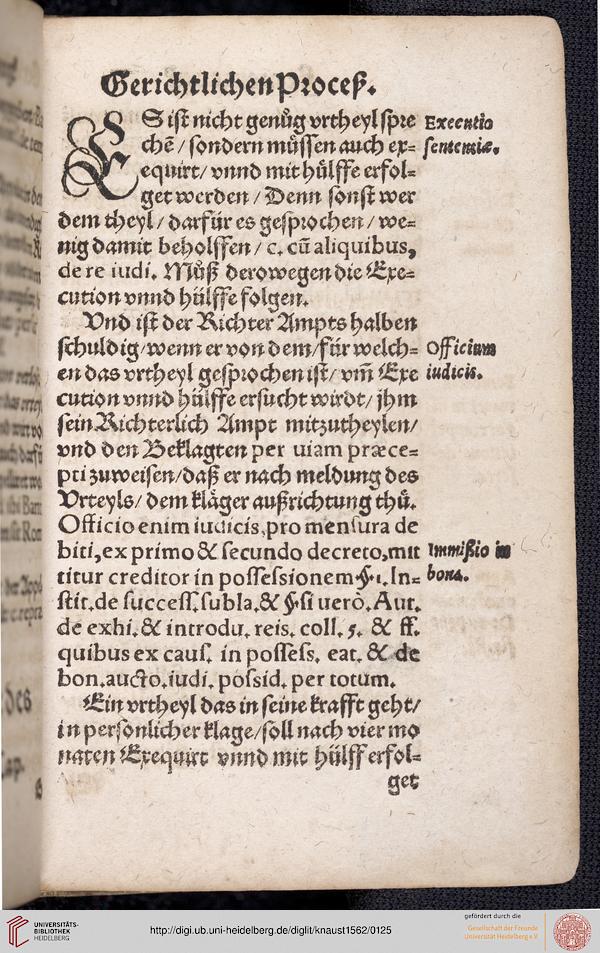 Gerichtlichen Proceß.
ES ist nicht genůg vrtheyl spre
chẽ / sondern můssen auch ex=
equirt / vnnd mit hülffe erfol=
get werden / Denn sonst wer
dem theyl / darfür es gesprochen / we=
nig damit beholffen / c. cũ aliquibus,
de re iudi. Můß derowegen die Exe=
cution vnnd hülffe folgen.
Executio
sententiæ.
Vnd ist der Richter Ampts halben
schuldig / wenn er von dem / für welch=
en das vrtheyl gesprochen ist / vm̃ Exe
cution vnnd hülffe ersucht wirdt / jhm
sein Richterlich Ampt mitzutheylen /
vnd den Beklagten per uiam præce=
pti zuweisen / daß er nach meldung des
Vrteyls / dem kläger außrichtung thů.
Officio enim iudicis, pro mensura de
biti, ex primo & secundo decreto, mit
titur creditor in possessionem §. 1. In=
stit. de success. subla. & §. si uerò. Aut.
de exhi. & introdu. reis. coll. 5. & ff.
quibus ex caus. in possess. eat. & de
bon. aucto. iudi. possid. per totum.
Officium
iudicis.
Immißio in
bona.
Ein vrtheyl das in seine krafft geht /
in personlicher klage / soll nach vier mo
naten Exequirt vnnd mit hülff erfol=
get
UNIVERSITÄTS-
BIBLIOTHEK
HEIDELBERG
http://digi.ub.uni-heidelberg.de/diglit/knaust1562/0125
gefördert durch die
Gesellschaft der Freunde
Universität Heidelberg e.V.